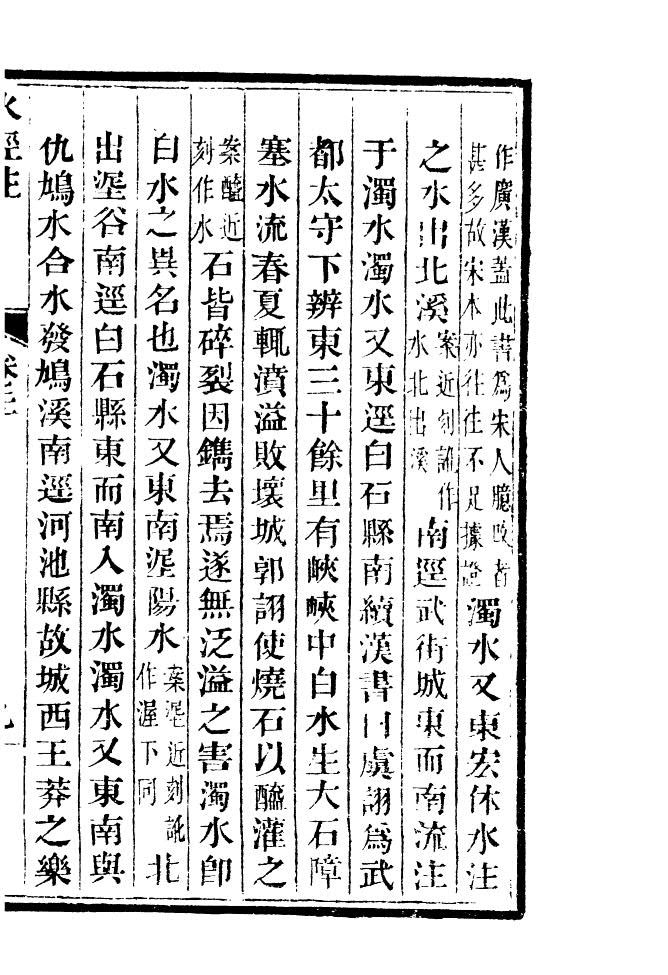 作廣漢蓋此書爲宋人臆改者
甚多故宋本亦往往不足據證
濁水又東宏休水注
之水出北溪
案近刻訛作
水北出溪
南逕武街城東而南流注
于濁水濁水又東逕白石縣南續漢書曰虞詡爲武
都太守下辨東三十餘里有峽峽中白水生大石障
塞水流春夏輒濆溢敗壞城郭詡使燒石以醯灌之
案醯近
刻作水
石皆碎裂因鐫去焉遂無泛溢之害濁水卽
白水之異名也濁水又東南埿陽水
案埿近刻訛
作渥下同
北
出埿谷南逕白石縣東而南入濁水濁水又東南與
仇鳩水合水發鳩溪南逕河池縣故城西王莽之樂
水經注
卷二